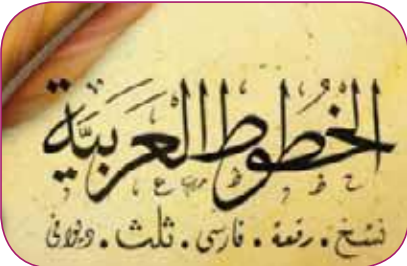 الخطوط العربية
نسخ . رقعة . فارسي . ثلث . ديواني